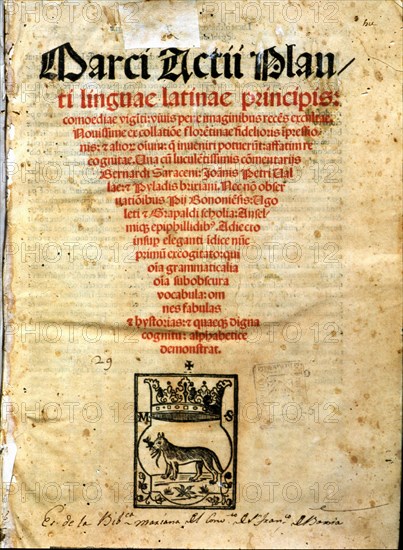 Marci Actii Plau⸗
ti linguae latinae principis:
comoediae vigīti: viuis pene imaginibus recēs excultae.
Nouissime ex collatiōe florētinae fidelioris īpressio
nis: & alior̄ oīum: q̄ inueniri potuerūt: affatim re
cognitae. Una cū luculētissimis cōmentariis
Bernardi Saraceni: Joānis Petri Val
lae: & Pyladis brixiani. Nec nō obser
uatiōibus Pij Bononiēsis: Ugo
leti & Grapaldi scholia: Ansel
miq; epiphillidibꝰ. Adiecto
insup eleganti īdice nūc
primū excogitato: qui
oīa grammaticalia
oīa subobscura
vocabula: om
nes fabulas
& hystorias: & quaeq; digna
cognitu: alphabetice
demonstrat.
29
M S
Es de la Bibca. Mariana del Convto. de S. Franco. de Baeza
PHOTO12